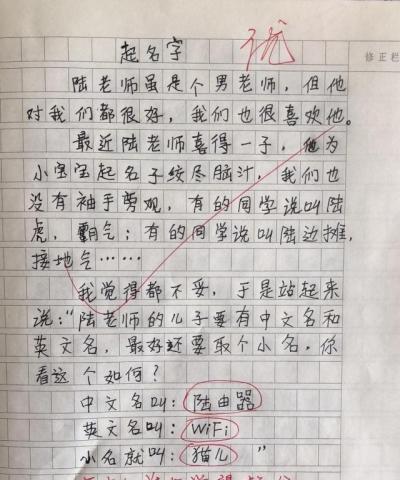 起名字
优
修正栏
陆老师虽是个男老师，但他
对我们都很好，我们也很喜欢他。
最近陆老师喜得一子，他为
小宝宝起名子绞尽脑汁，我们也
没有袖手剪观，有的同学说叫陆
虎，霸气；有的同学说叫陆边摊，
接地气……
我觉得都不妥，于是站起来
说：“陆老师的儿子要有中文名和
英文名，最好还要取个小名，你
看这个如何？
中文名叫：陆由器
英文名叫：WiFi
小名就叫：猫儿”